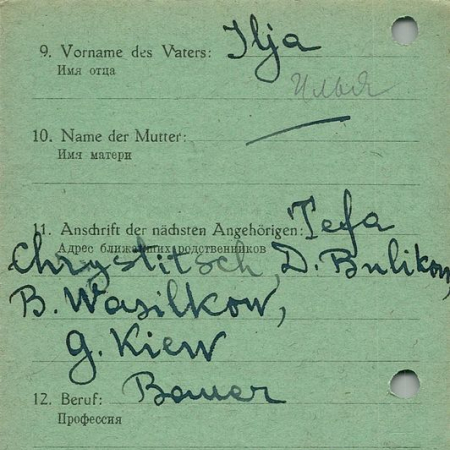 9. Vorname des Vaters: Ilja
Имя отца
Илья
10. Name der Mutter:
Имя матери
11. Anschrift der nächsten Angehörigen: Tefa
Адрес ближайших родственников
Chrystitsch, D. Bulikow,
B. Wasilkow,
G. Kiew
12. Beruf: Bauer
Профессия